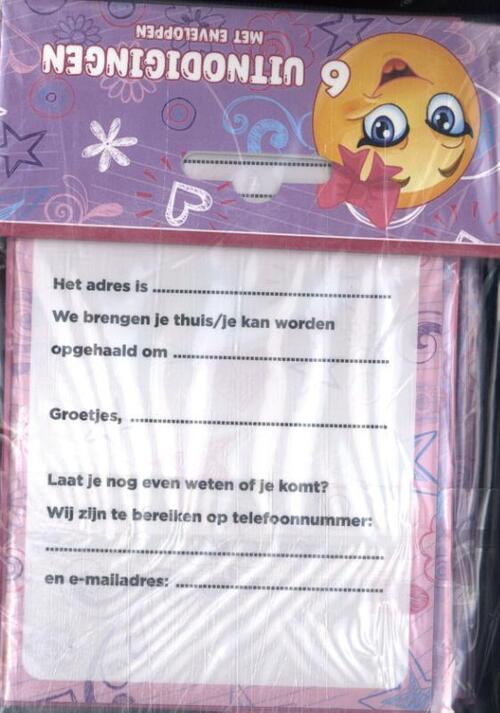 6 UITNODIGINGEN
MET ENVELOPPEN
Het adres is
We brengen je thuis/je kan worden
opgehaald om
Groetjes,
Laat je nog even weten of je komt?
Wij zijn te bereiken op telefoonnummer:
en e-mailadres: